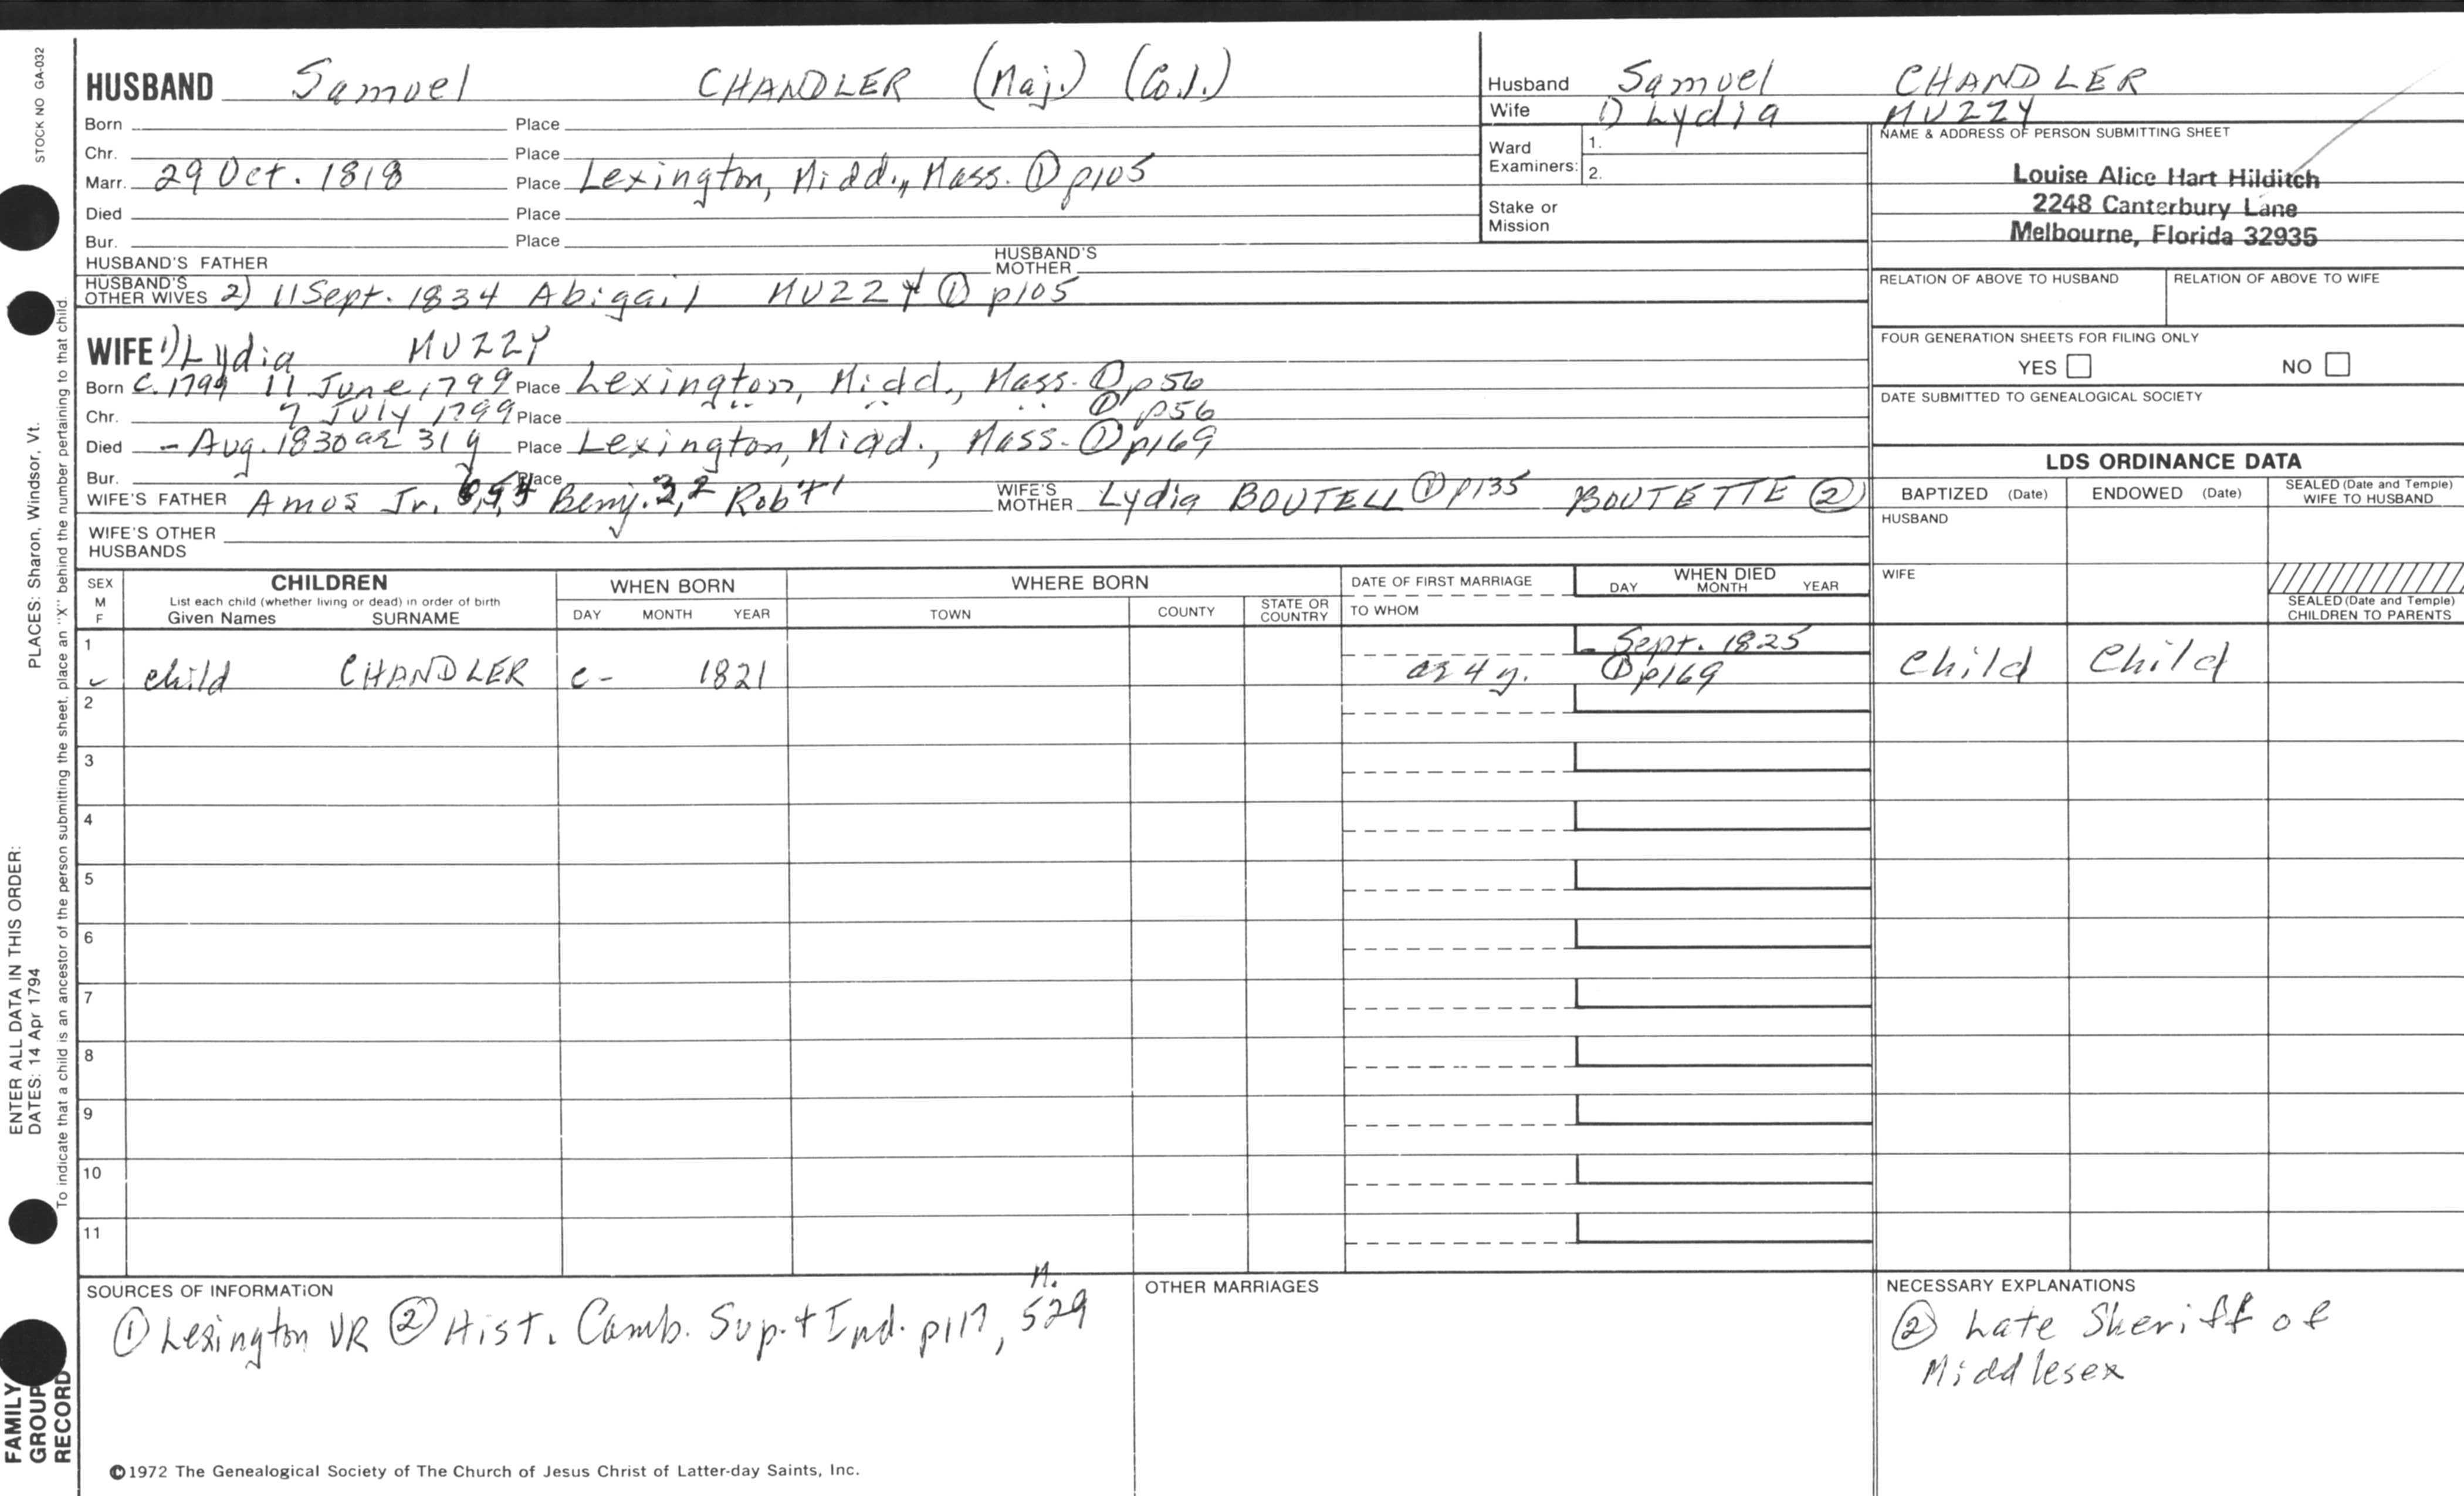 STOCK NO GA-032
HUSBAND Samuel CHANDLER (Maj.) (Col.)
Born Place
Chr. Place
Marr. 29 Oct. 1818 Place Lexington, Midd., Mass. ① p105
Died Place
Bur. Place
HUSBAND'S FATHER HUSBAND'S MOTHER
HUSBAND'S OTHER WIVES 2) 11 Sept. 1834 Abigail MUZZY ① p105
WIFE 1) Lydia MUZZY
Born c. 1799 11 June, 1799 Place Lexington, Midd., Mass. ① p56
Chr. 7 July 1799 Place " " " ① p56
Died - Aug. 1830 ae 31 y Place Lexington, Midd., Mass. ① p169
Bur. Place
WIFE'S FATHER Amos Jr. Benj. Rob't 1 WIFE'S MOTHER Lydia BOUTELL ① p135 BOUTETTE ②
WIFE'S OTHER HUSBANDS
Husband Samuel CHANDLER
Wife 1) Lydia MUZZY
Ward Examiners: 1.
2.
Stake or Mission
NAME & ADDRESS OF PERSON SUBMITTING SHEET
Louise Alice Hart Hilditch
2248 Canterbury Lane
Melbourne, Florida 32935
RELATION OF ABOVE TO HUSBAND RELATION OF ABOVE TO WIFE
FOUR GENERATION SHEETS FOR FILING ONLY
YES NO
DATE SUBMITTED TO GENEALOGICAL SOCIETY
LDS ORDINANCE DATA
BAPTIZED (Date) ENDOWED (Date) SEALED (Date and Temple) WIFE TO HUSBAND
HUSBAND
WIFE
SEALED (Date and Temple) CHILDREN TO PARENTS
SEX M F
CHILDREN
List each child (whether living or dead) in order of birth
Given Names SURNAME
WHEN BORN
DAY MONTH YEAR
WHERE BORN
TOWN COUNTY STATE OR COUNTRY
DATE OF FIRST MARRIAGE
TO WHOM
WHEN DIED
DAY MONTH YEAR
1 - Sept. 1825
child CHANDLER c- 1821 ae 4 y. ① p169 Child Child
2
3
4
5
6
7
8
9
10
11
SOURCES OF INFORMATION
① Lexington VR ② Hist. Camb. Sup. + Ind. p117, M. 529
OTHER MARRIAGES
NECESSARY EXPLANATIONS
② Late Sheriff of
Middlesex
©1972 The Genealogical Society of The Church of Jesus Christ of Latter-day Saints, Inc.
ENTER ALL DATA IN THIS ORDER:
DATES: 14 Apr 1794 PLACES: Sharon, Windsor, Vt.
To indicate that a child is an ancestor of the person submitting the sheet, place an "X" behind the number pertaining to that child.
FAMILY
GROUP
RECORD